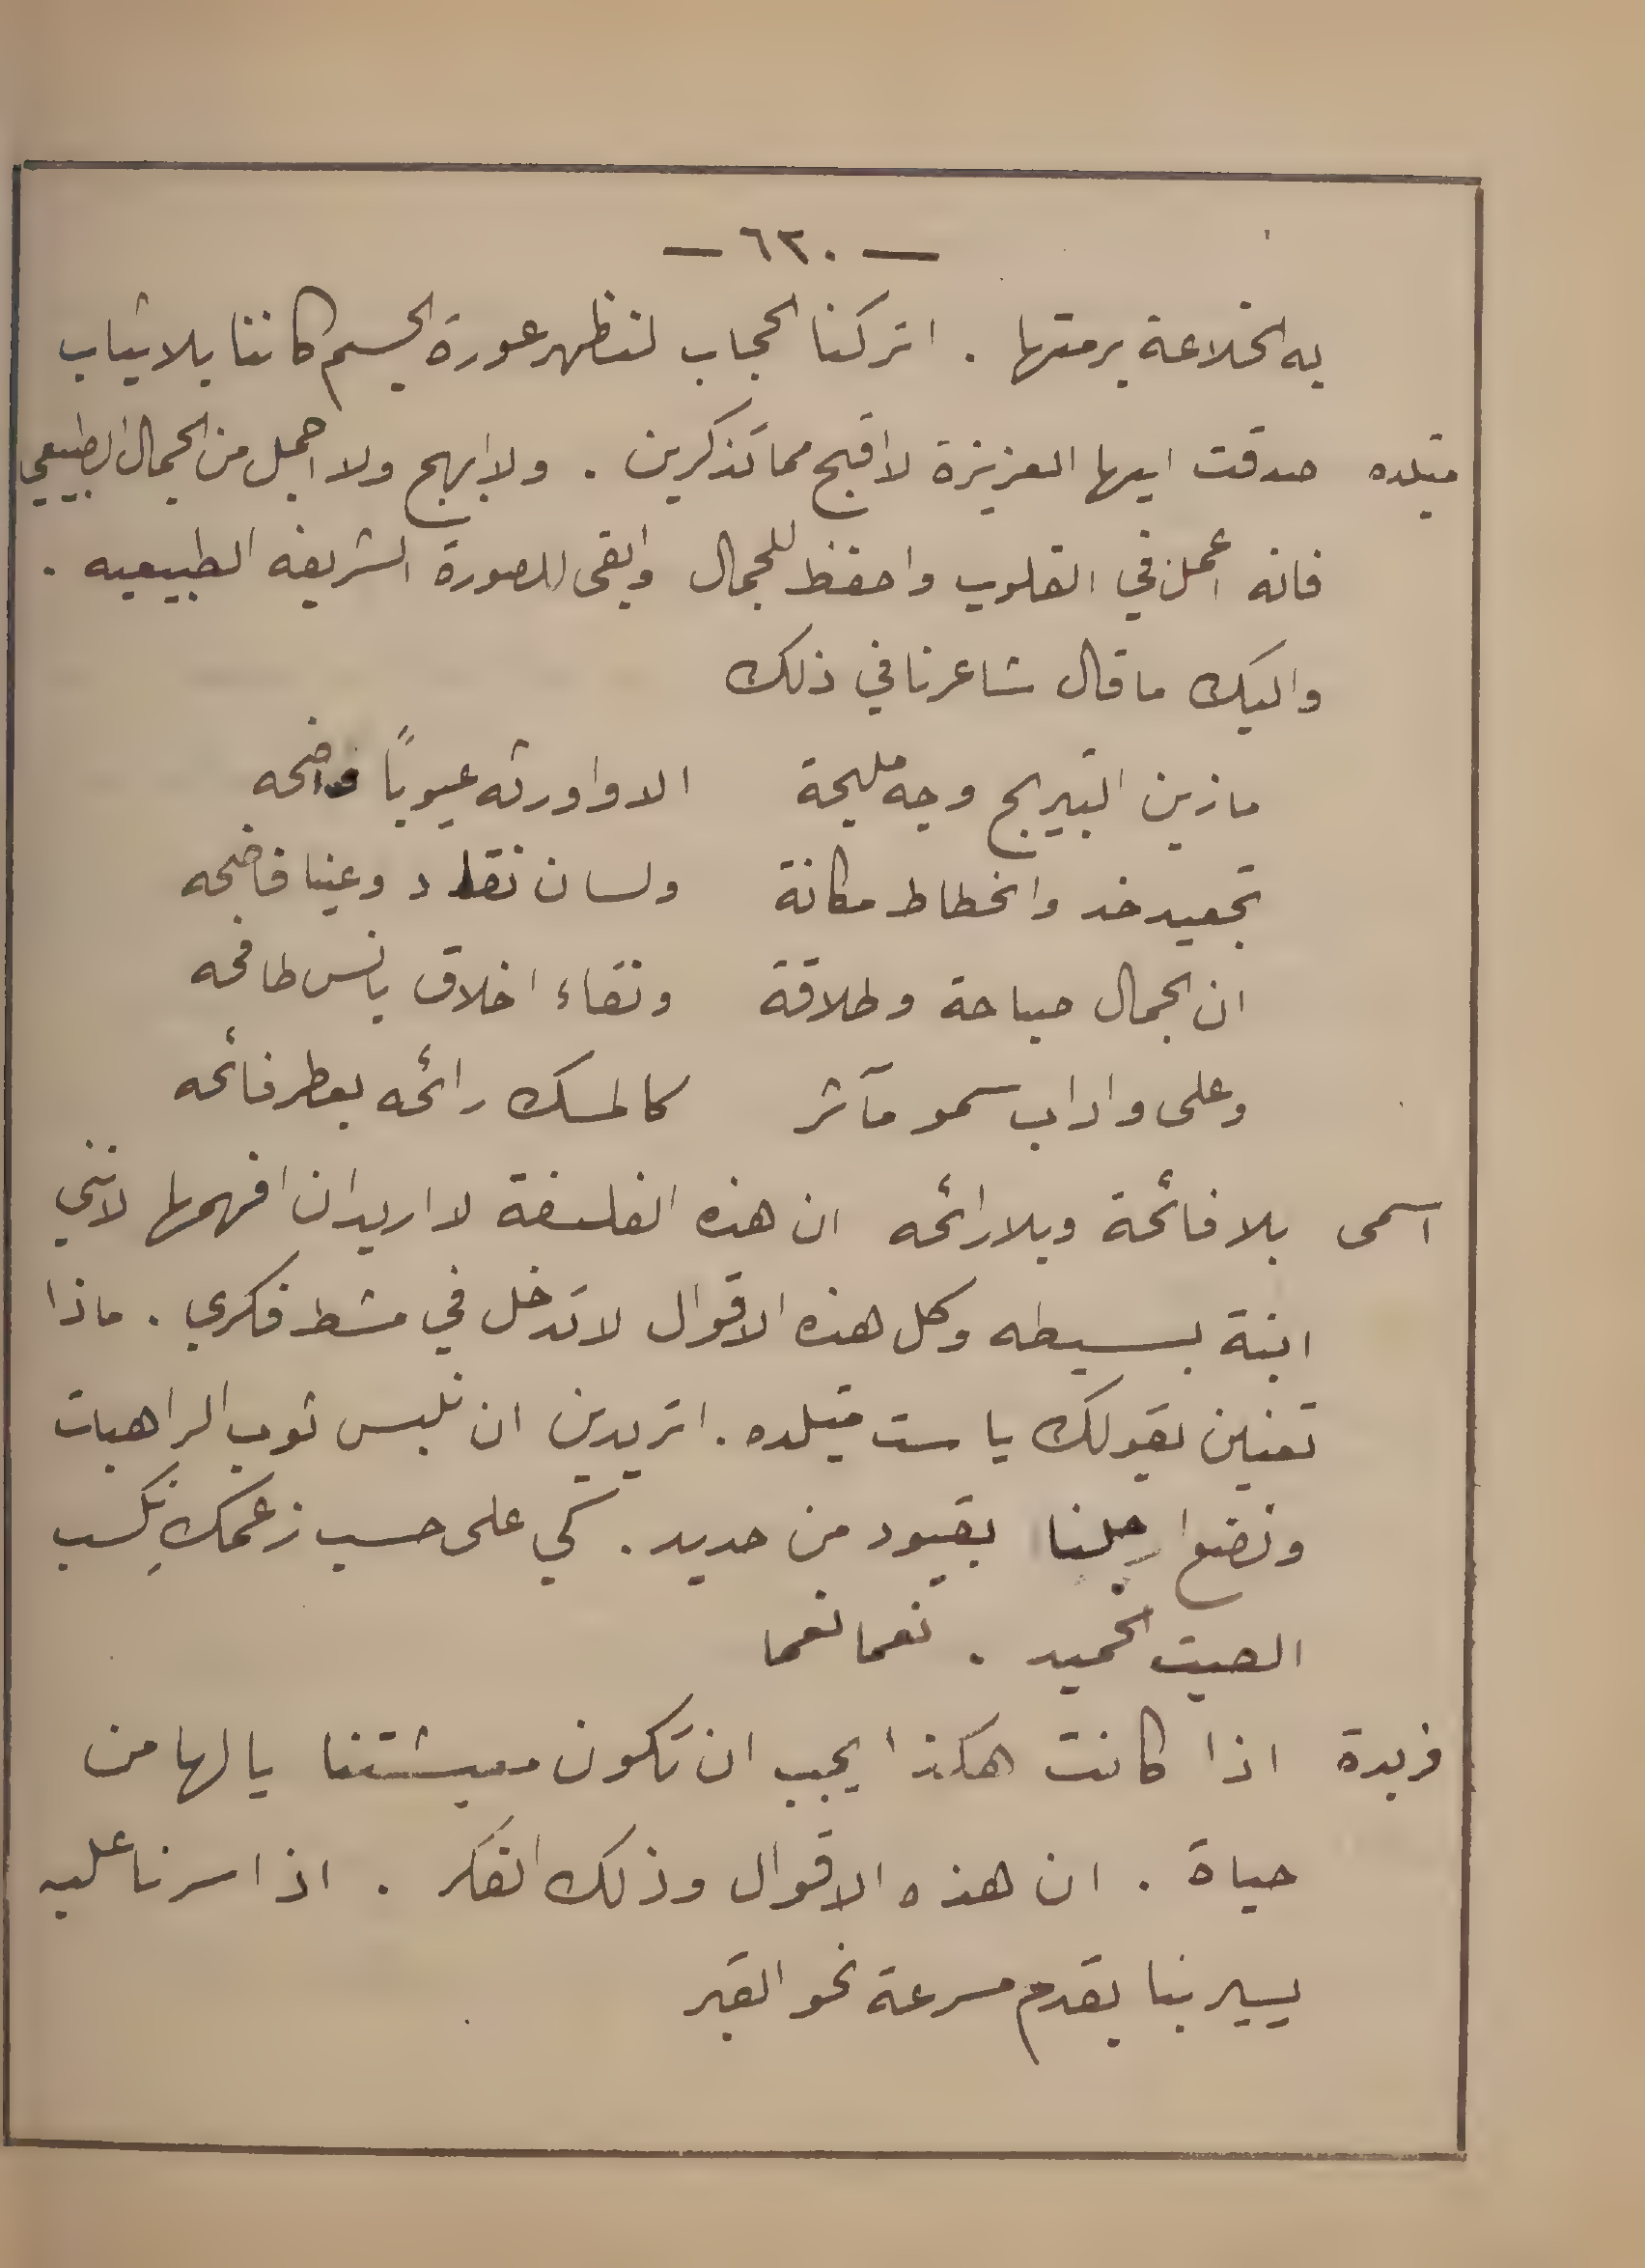 — ٦٢٠ —
به الخلاعة برمتها . اتركنا الحجاب لنظهر عورة الجسم كاننا بلا ثياب
متيلده صدقت ايها العزيزة لا اقبح مما تذكرين . ولا ابهج ولا اجمل من الجمال الطبيعي
فانه اعمل في القلوب واحفظ للجمال وابقى للصورة الشريفه الطبيعيه .
واليك ما قال شاعرنا في ذلك
ما زين التبريج وجه مليحة الا واورثه عيوباً فاضحه
تجعيد خد وانحطاط مكانة ولسان نقاد وعينا فاضحه
ان الجمال صباحة وطلاقة ونقاء اخلاق بانس طافحه
وعلى واداب سمو مآثر كالمسك رائحه بعطر فائحه
اسمى بلا فائحة وبلا رائحه ان هذه الفلسفة لا اريد ان افهمها لانني
ابنة بسيطه وكل هذه الاقوال لا تدخل في مشط فكري . ماذا
تعنين بقولك يا ست متيلده . اتريدين ان نلبس ثوب الراهبات
ونضع ارجلنا بقيود من حديد . كي على حسب زعمكِ نكسب
الصيت الحميد . نعما نعما
فريدة اذا كانت هكذا يجب ان تكون معيشتنا يا لها من
حياة . ان هذه الاقوال وذلك الفكر . اذا سرنا عليه
يسير بنا بقدم مسرعة نحو القبر